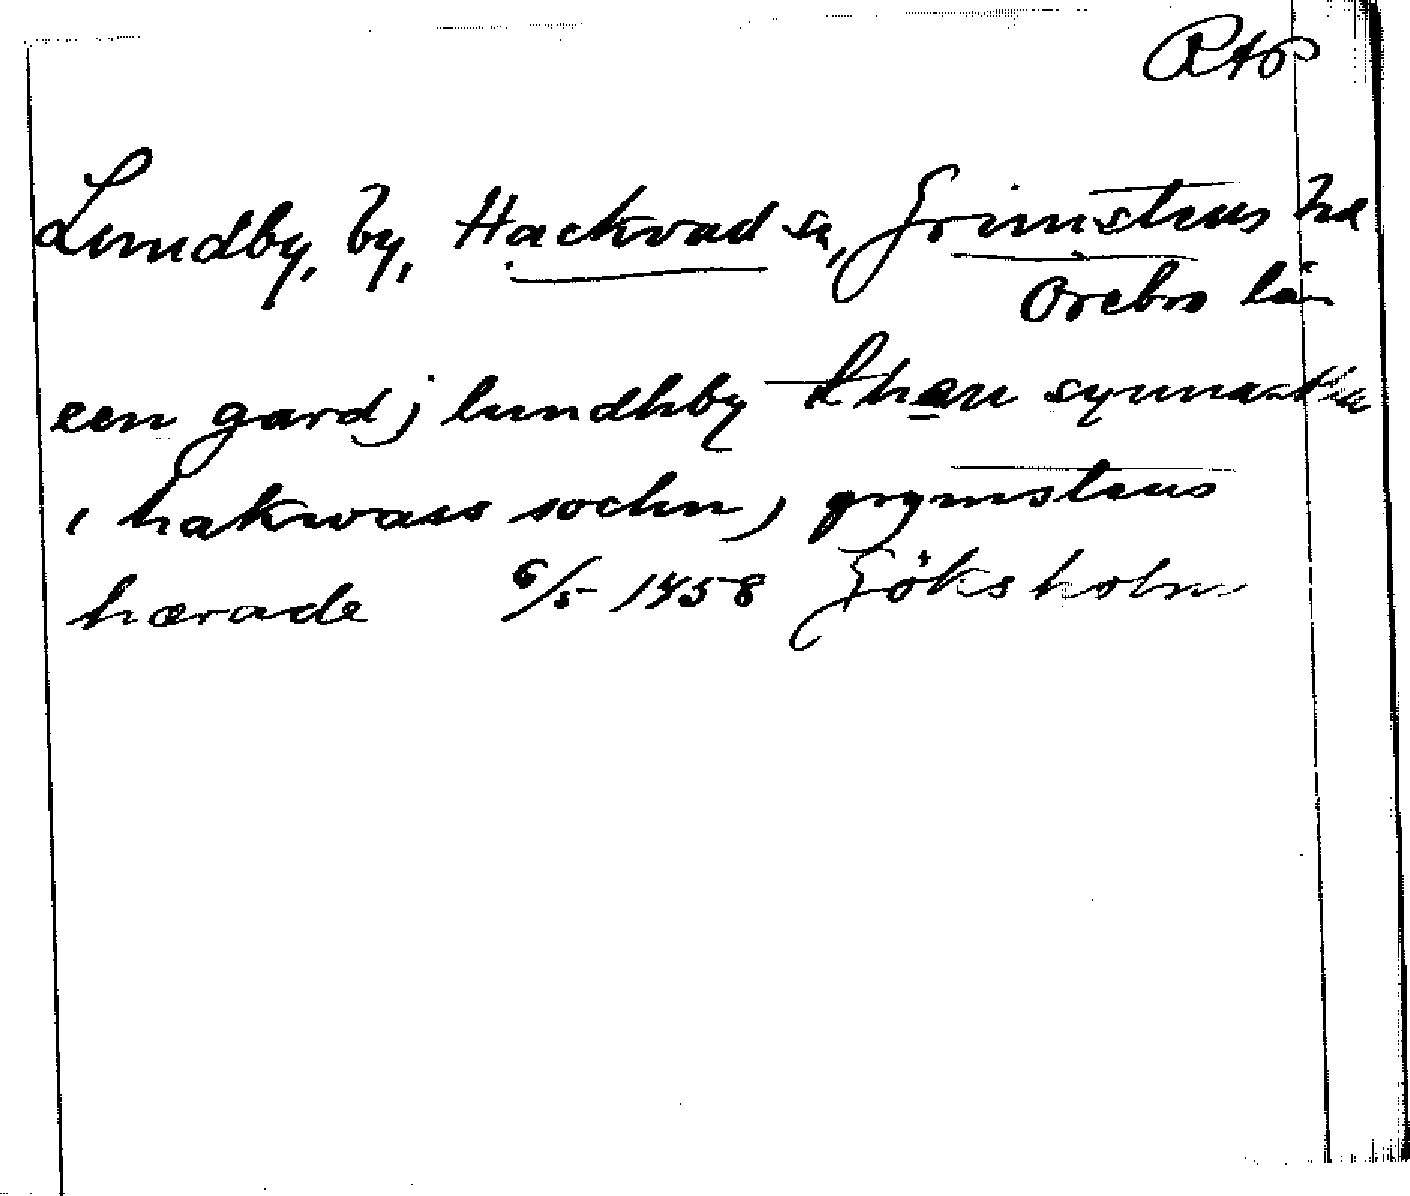 RAp
Lundby, by, Hackvad sn, Grimstens hd
Örebro län
een gard j lundhby then synnasthe
i hakwass sochn j grymstens
hærade 6/5 1458 Göksholm